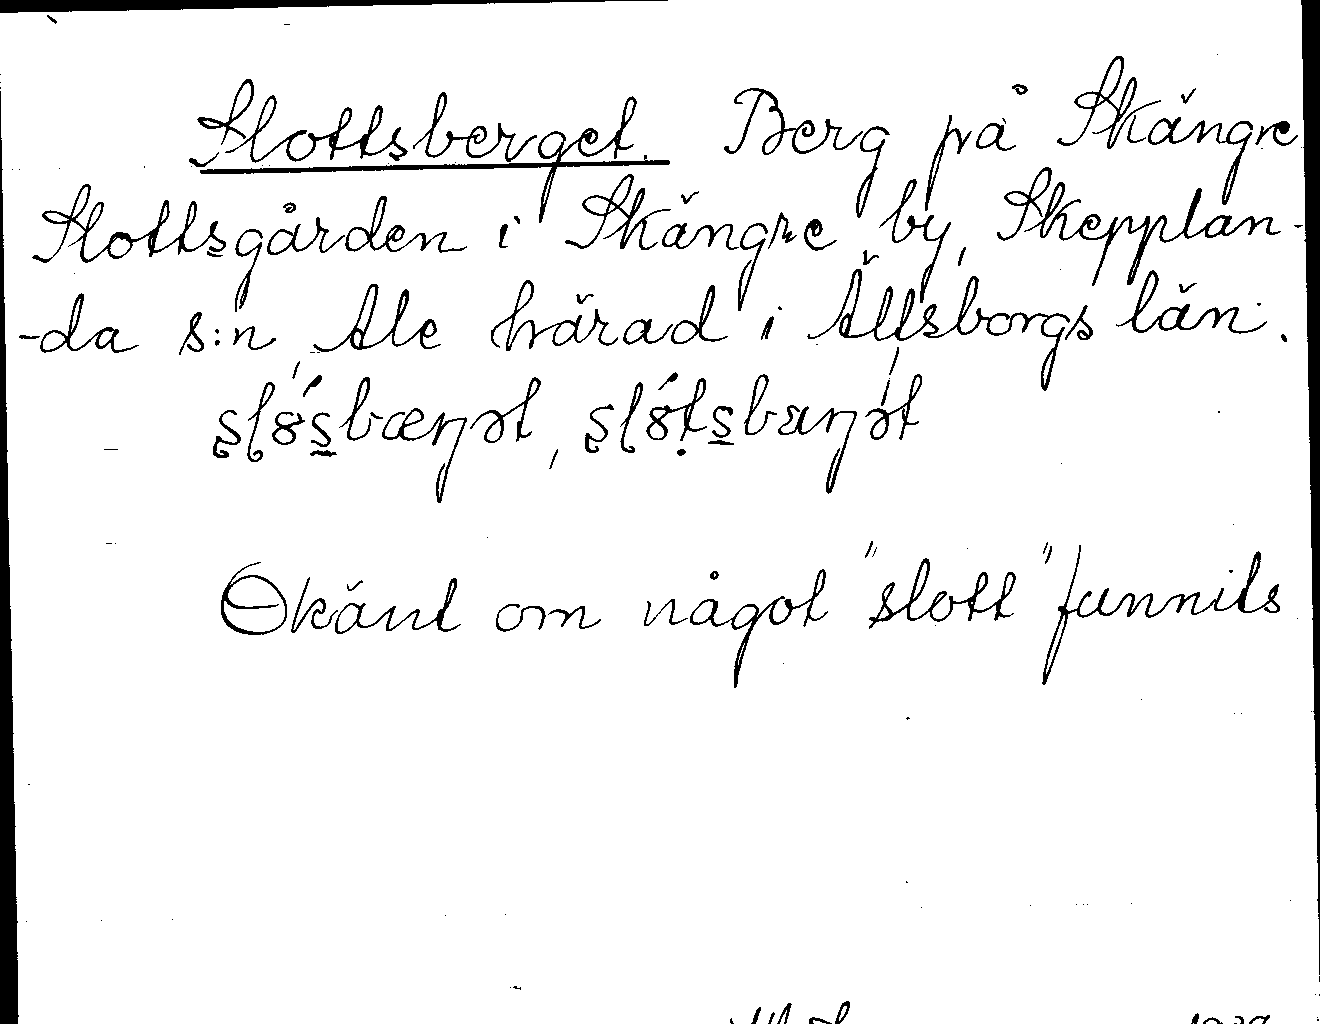 Slottsberget. Berg på Skängre
Slottsgården i Skängre by, Skepplan-
-da s:n, Ale härad i Älfsborgs län.
slósbæŋət, slótsbæŋət
Okänt om något "slott" funnits